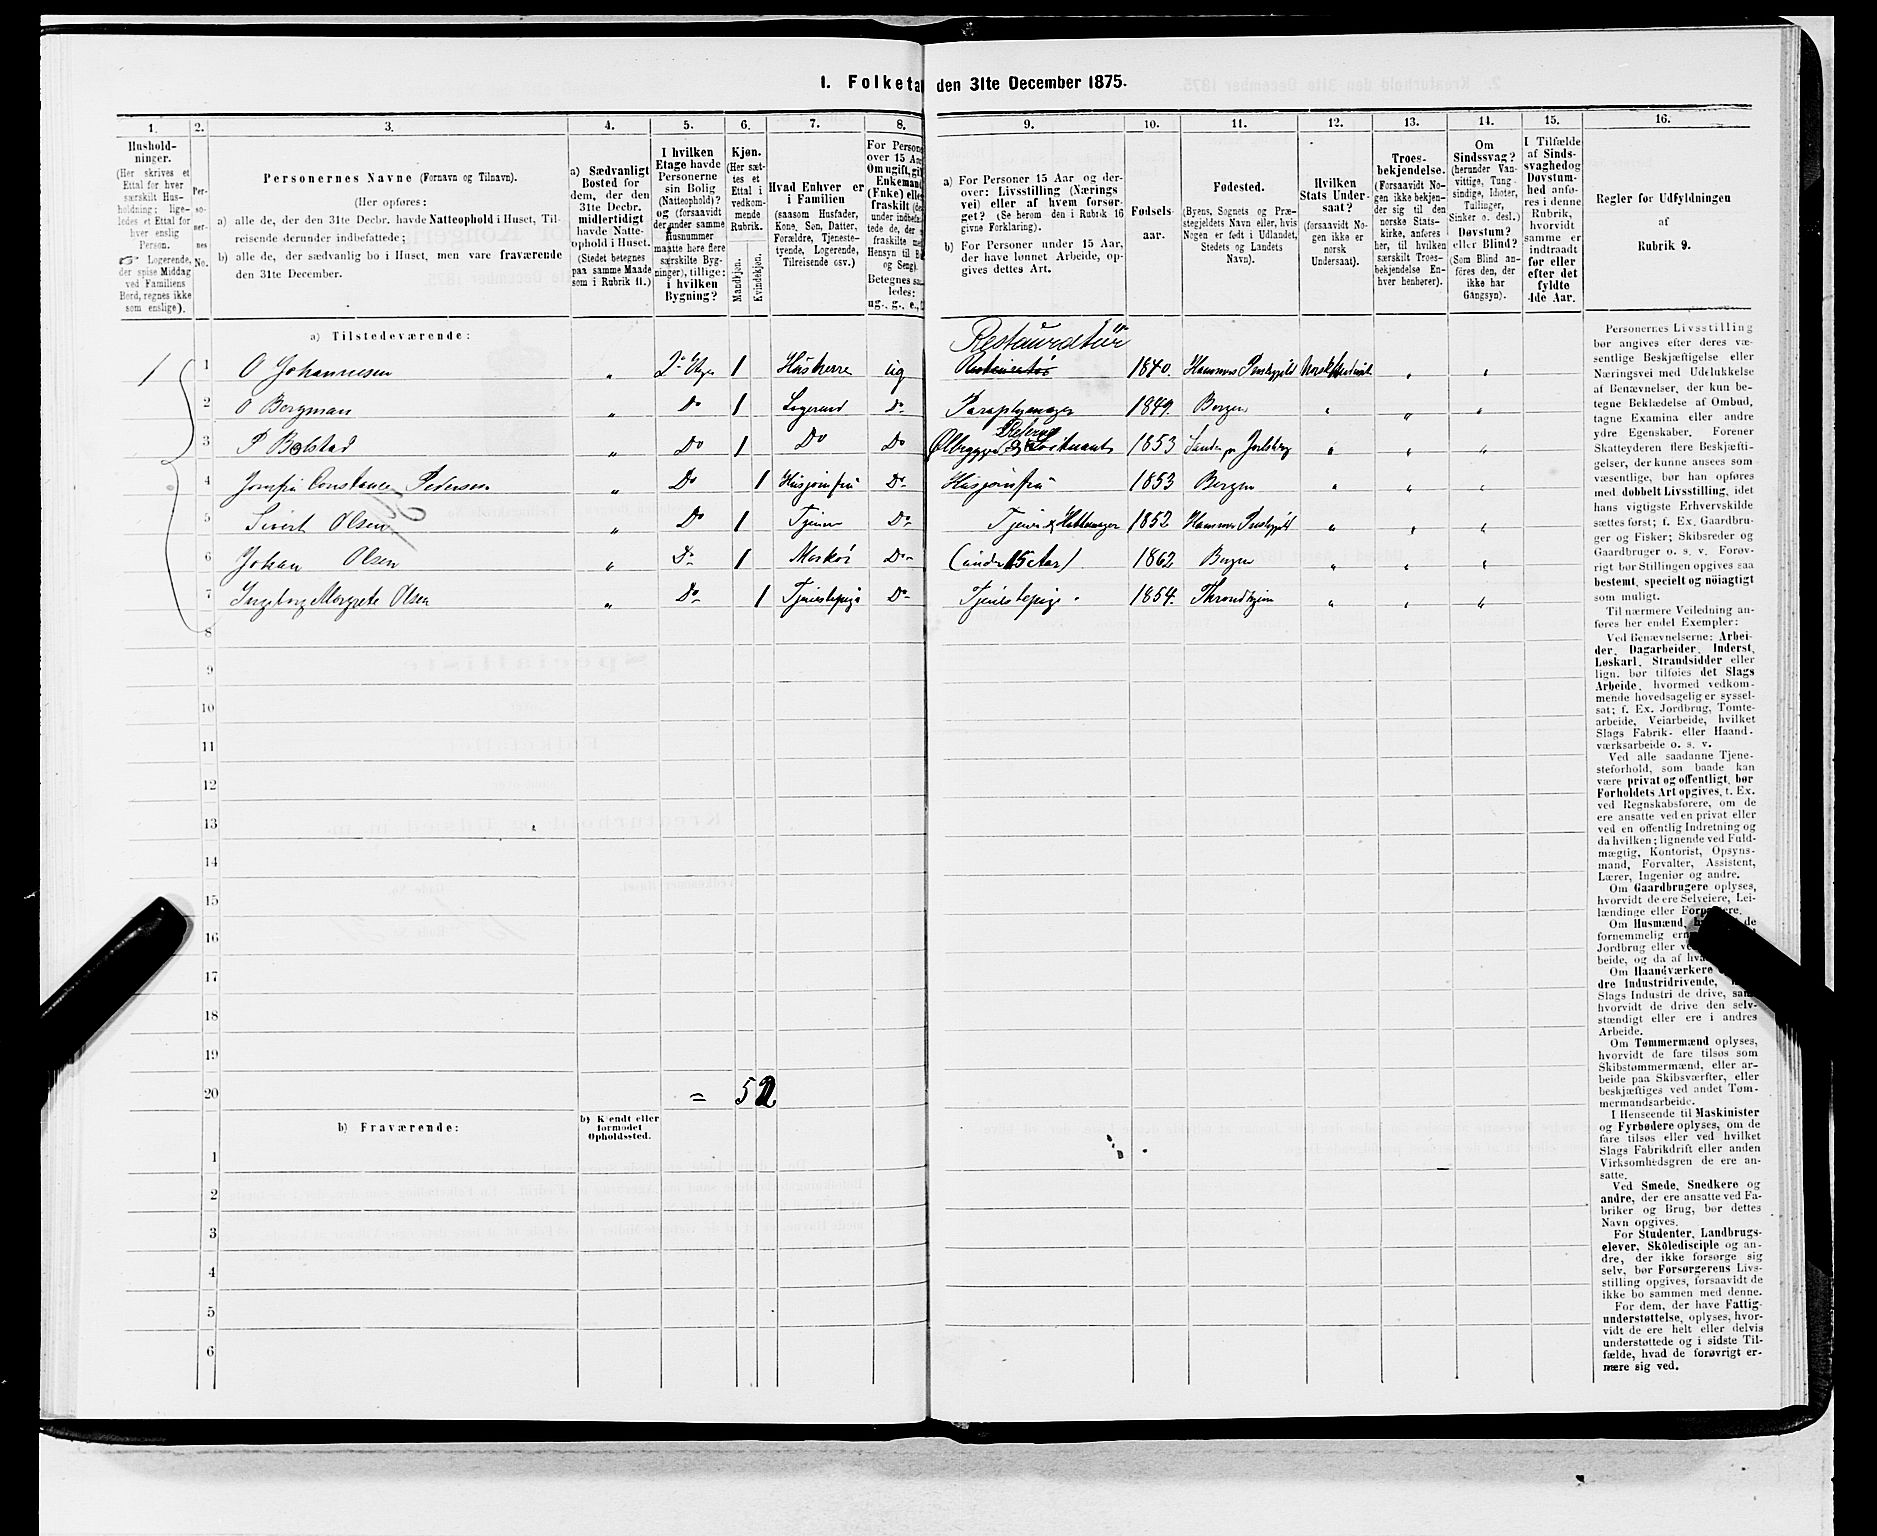 1. Folketæ den 31te December 1875.
1. 2. 3. 4. 5. 6. 7. 8. 9. 10. 11. 12. 13. 14. 15. 16.
Hushold-
ninger.
(Her skrives et
Ettal for hver
særskilt Hus-
holdning; lige-
ledes et Ettal for
hver enslig
Person.
Logerende,
der spise Middag
ved Familiens
Bord, regnes ikke
som enslige).
Per-
so-
ner-
nes
No.
Personernes Navne (Fornavn og Tilnavn).
(Her opføres:
a) alle de, der den 31te Decbr. havde Natteophold i Huset, Til-
reisende derunder indbefattede;
b) alle de, der sædvanlig bo i Huset, men vare fraværende
den 31te December.
a) Sædvanligt
Bosted for
dem, der den
31te Decbr.
midlertidigt
havde Natte-
ophold i Huset.
(Stedet betegnes
paa samme Maade
som i Rubrik 11.)
I hvilken
Etage havde
Personerne
sin Bolig
(Natteophold)?
og (forsaavidt
der under samme
Husnummer
maatte høre flere
særskilte Byg-
ninger), tillige:
i hvilken
Bygning?
Kjøn.
(Her sæt-
tes et
Ettal i
vedkom-
mende
Rubrik.
Mandkjøn.
Kvindekjøn.
Hvad Enhver er
i Familien
(saasom Husfader,
Kone, Søn, Datter,
Forældre, Tjeneste-
tyende, Logerende,
Tilreisende osv.)
For Persone
over 15 Aar
Om ugift, gif
Enkemand
(Enke) eller
fraskilt (de
under indbefat-
tede de, der
fraskilte me
Hensyn til B
og Seng).
Betegnes saa
ledes:
ug., g., e.,
a) For Personer 15 Aar og der-
over: Livsstilling (Nærings
vei) eller af hvem forsør-
get? (Se herom den i Rubrik 16
givne Forklaring).
b) For Personer under 15 Aar,
der have lønnet Arbeide, op-
gives dettes Art.
Fødsels-
aar.
Fødested.
(Byens, Sognets og Præ-
stegjeldets Navn eller, hvis
Nogen er født i Udlandet,
Stedets og Landets
Navn).
Hvilken
Stats Under-
saat?
(forsaavidt No-
gen ikke er
norsk
Undersaat).
Troes-
bekjendelse.
(Forsaavidt No-
gen ikke bekjen-
der sig til den
norske Stats-
kirke, anføres
her, til hvilken
særskilt Troes-
bekjendelse En-
hver henhører).
Om
Sindssvag?
(herunder Van-
vittige, Tung-
sindige, Idioter,
Tullinger,
Sinker o. desl.)
Døvstum?
eller Blind?
(Som Blind an-
føres den, der
ikke har
Gangsyn).
I Tilfælde
af Sinds-
svaghed og
Døvstum-
hed anfø-
res i denne
Rubrik,
hvorvidt
samme er
indtraadt
før eller
efter det
fyldte
4de Aar.
Regler for Udfyldningen
af
Rubrik 9.
a) Tilstedeværende:
Restauratør
1 1 O Johannesen „ 2. Etage 1 Husherre ug 1840. Hammers Præstegjeld Norsk „ „
2 O Bergman „ Do 1 Logerend Do Paraplymager 1849. Bergen „ „ „
3 P Bolstad „ Do 1 Do Do Ølbrygger & Reserve Løitnant 1853 Jarlsberg „ „ „
4 Jomfru Constance Pedersen „ Do 1 Husjomfru Do Husjomfru 1853 Bergen „ „ „
5 Sivert Olsen „ Do 1 Tjener Do Tjener & Hattemager 1852 Hammers Præstegjeld „ „ „
6 Johan Olsen „ Do 1 Markør Do (under 15 Aar) 1862 Bergen „ „ „
7 Ingeborg Margrete Olsen „ Do 1 Tjenestepige Do Tjenestepige 1854. Throndhjem „ „ „
8
9
10
11
12
13
14
15
16
17
18
19
20 = 5 2
b) Fraværende:
b) Kjendt eller
formodet
Opholdssted.
1
2
3
4
5
6
Personernes Livsstilling
bør angives efter deres væ-
sentlige Beskjæftigelse eller
Næringsvei med Udelukkelse
af Benævnelser, der kun be-
tegne Beklædelse af Ombud,
tagne Examina eller andre
ydre Egenskaber. Forener
Skatteyderen flere Beskjæfti-
gelser, der kunne ansees som
væsentlige, bør han opføres
med dobbelt Livsstilling, idet
hans vigtigste Erhvervskilde
sættes først; f. Ex. Gaardbru-
ger og Fisker; Skibsreder og
Gaardbruger o. s. v. Forøv-
rigt bør Stillingen opgives saa
bestemt, specielt og nöiagtigt
som muligt.
Til nærmere Veiledning an-
føres her endel Exempler:
Ved Benævnelserne: Arbei-
der, Dagarbeider, Inderst,
Løskarl, Strandsidder eller
lign. bør tilføies det Slags
Arbeide, hvormed vedkom-
mende hovedsagelig er syssel-
sat; f. Ex. Jordbrug, Tomte-
arbeide, Veiarbeide, hvilket
Slags Fabrik- eller Haand-
værksarbeide o. s. v.
Ved alle saadanne Tjene-
steforhold, som baade kan
være privat og offentligt, bør
Forholdets Art opgives, t. Ex.
ved Regnskabsførere, om de
ere ansatte ved en privat eller
ved en offentlig Indretning og
da hvilken; lignende ved Fuld-
mægtig, Kontorist, Opsyns-
mand, Forvalter, Assistent,
Lærer, Ingeniør og andre.
Om Gaardbrugere oplyses,
hvorvidt de ere Selveiere, Lei-
lændinge eller Forpagtere.
Om Husmænd, de
fornemmelig
Jordbrug eller
beide, og da af
Om Haandværkere
dre Industridrivende,
Slags Industri de drive, samt
hvorvidt de drive den selv-
stændigt eller ere i andres
Arbeide.
Om Tømmermænd oplyses,
hvorvidt de fare tilsøs som
Skibstømmermænd, eller ar-
beide paa Skibsværfter, eller
beskjæftiges ved andet Tøm-
mermandsarbeide.
I Henseende til Maskinister
og Fyrbødere oplyses, om de
fare tilsøs eller ved hvilket
Slags Fabrikdrift eller anden
Virksomhedsgren de ere an-
satte.
Ved Smede, Snedkere og
andre, der ere ansatte ved Fa-
briker og Brug, bør dettes
Navn opgives.
For Studenter, Landbrugs-
elever, Skoledisciple og an-
dre, der ikke forsørge sig
selv, bør Forsørgerens Livs-
stilling opgives, forsaavidt de
ikke bo sammen med denne.
For dem, der have Fattig-
understøttelse, oplyses, hvor-
vidt de ere helt eller delvis
understøttede og i sidste Til-
fælde, hvad de forøvrigt er-
nære sig ved.